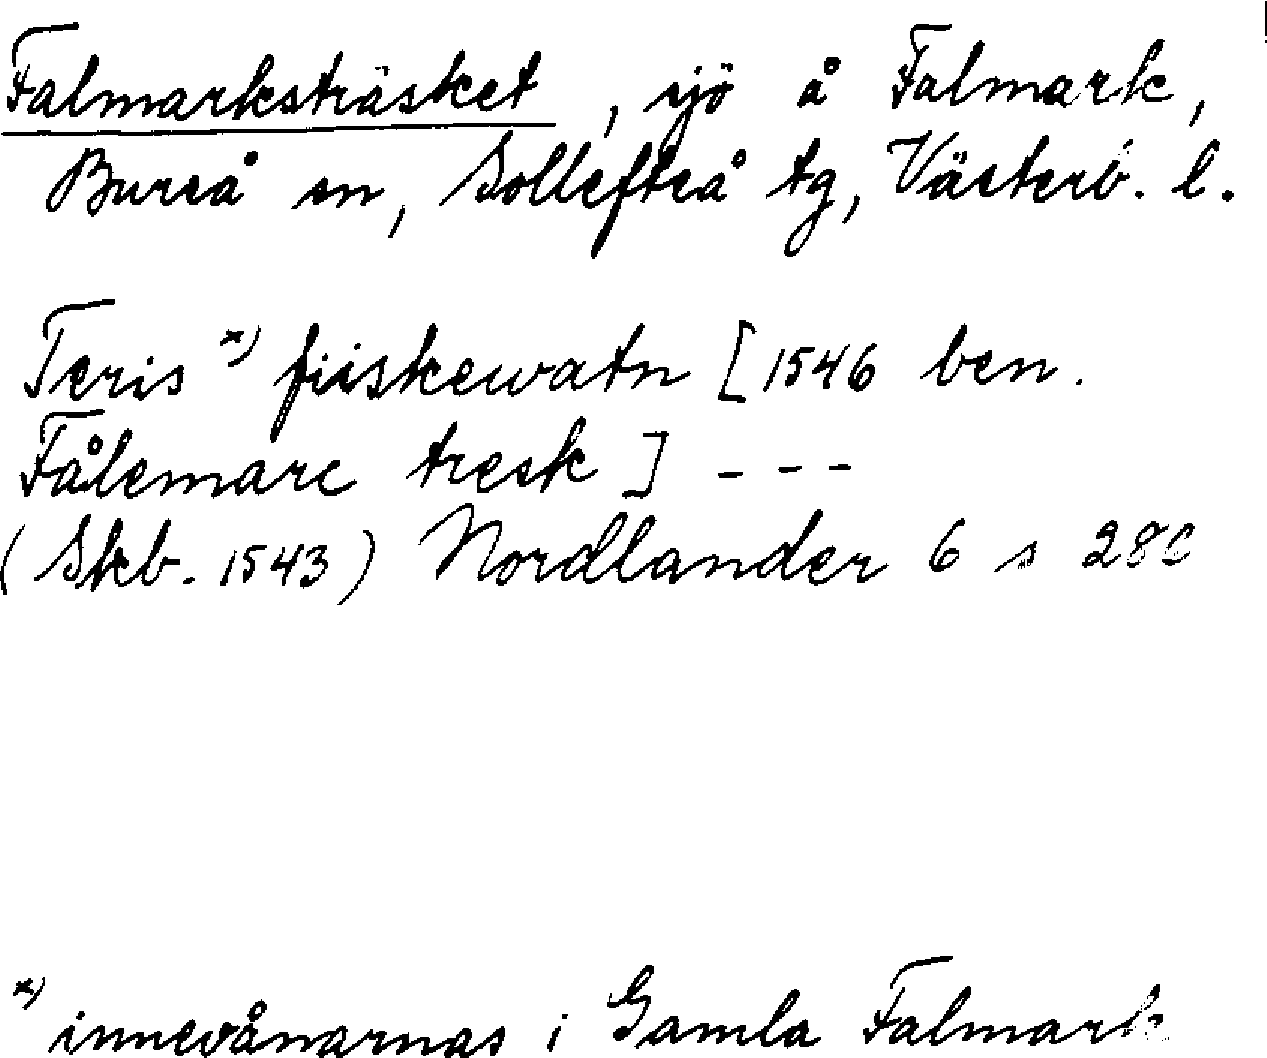 Falmarksträsket, sjö å Falmark,
Bureå sn, Sollefteå tg, Västerb. l.
Teris x) fiiskewatn [1546 ben.
Fålemarc tresk] - - -
(Skb. 1543) Nordlander 6 s 280
x) innevånarnas i Gamla Falmark